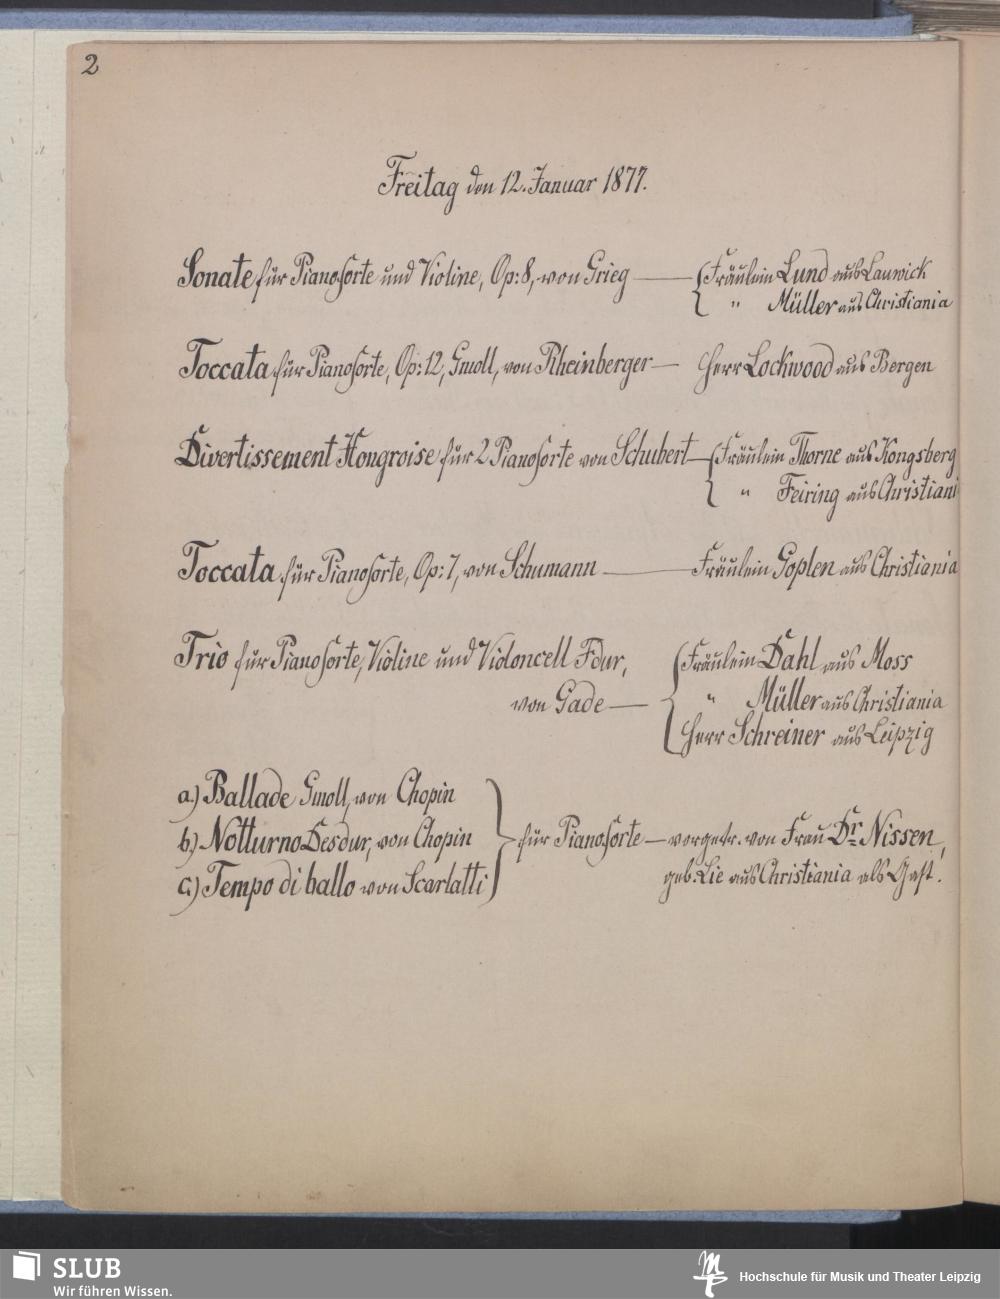 2
Freitag den 12. Januar 1877.
Sonate für Pianoforte und Violine, Op: 8, von Grieg — Fräulein Lund aus Laurvick
" Müller aus Christiania
Toccata für Pianoforte, Op: 12, Gmoll, von Rheinberger — Herr Lockwood aus Bergen
Divertissement Hongroise für 2 Pianoforte von Schubert — Fräulein Thorne aus Kongsberg
" Feiring aus Christiani
Toccata für Pianoforte, Op: 7, von Schumann — Fräulein Goplen aus Christiania
Trio für Pianoforte, Violine und Violoncell Fdur,
von Gade —
Fräulein Dahl aus Moss
" Müller aus Christiania
Herr Schreiner aus Leipzig
a.) Ballade Gmoll, von Chopin
b.) Notturno Desdur, von Chopin
c.) Tempo di ballo von Scarlatti
für Pianoforte — vorgetr. von Frau Dr. Nissen,
geb: Lie aus Christiania als Gast.
SLUB
Wir führen Wissen.
Hochschule für Musik und Theater Leipzig